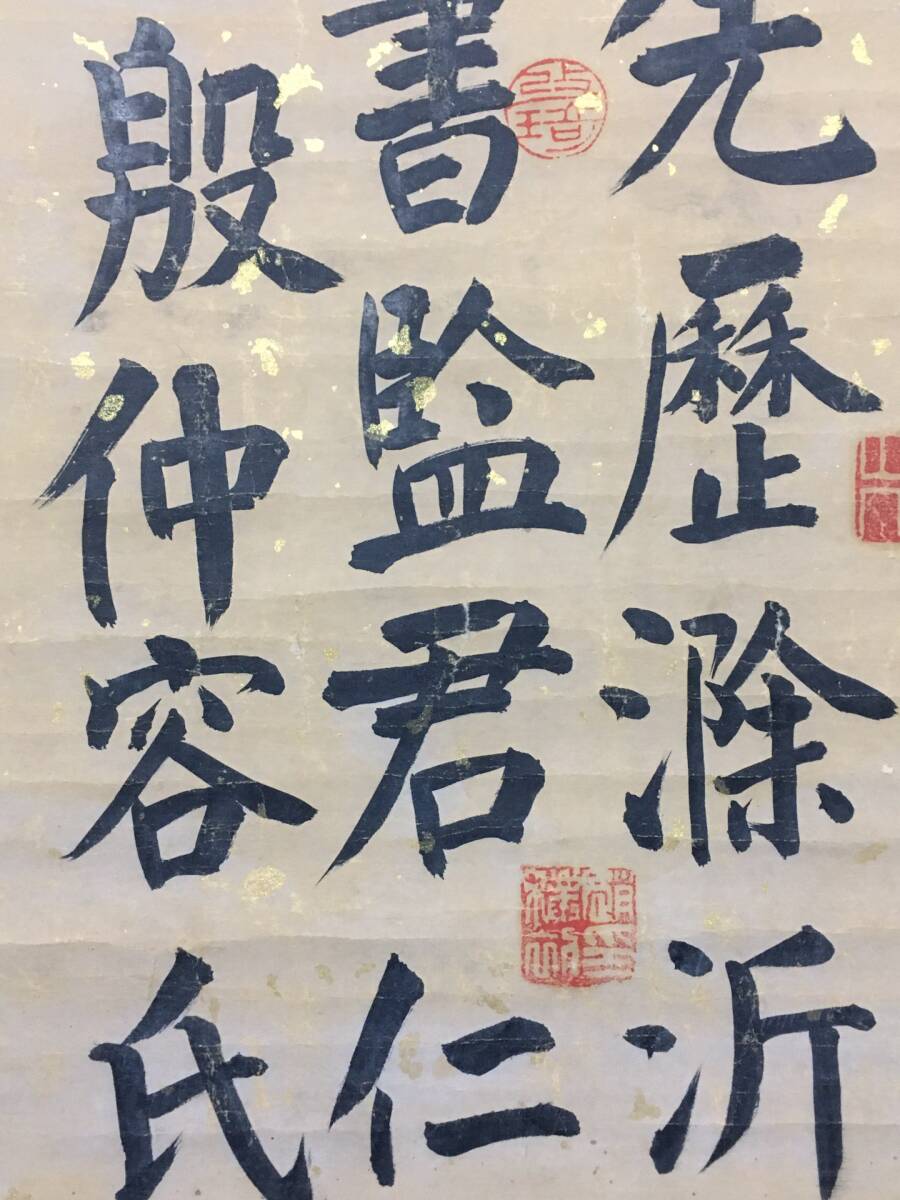 先歷滁沂
書監君仁
殷仲容氏